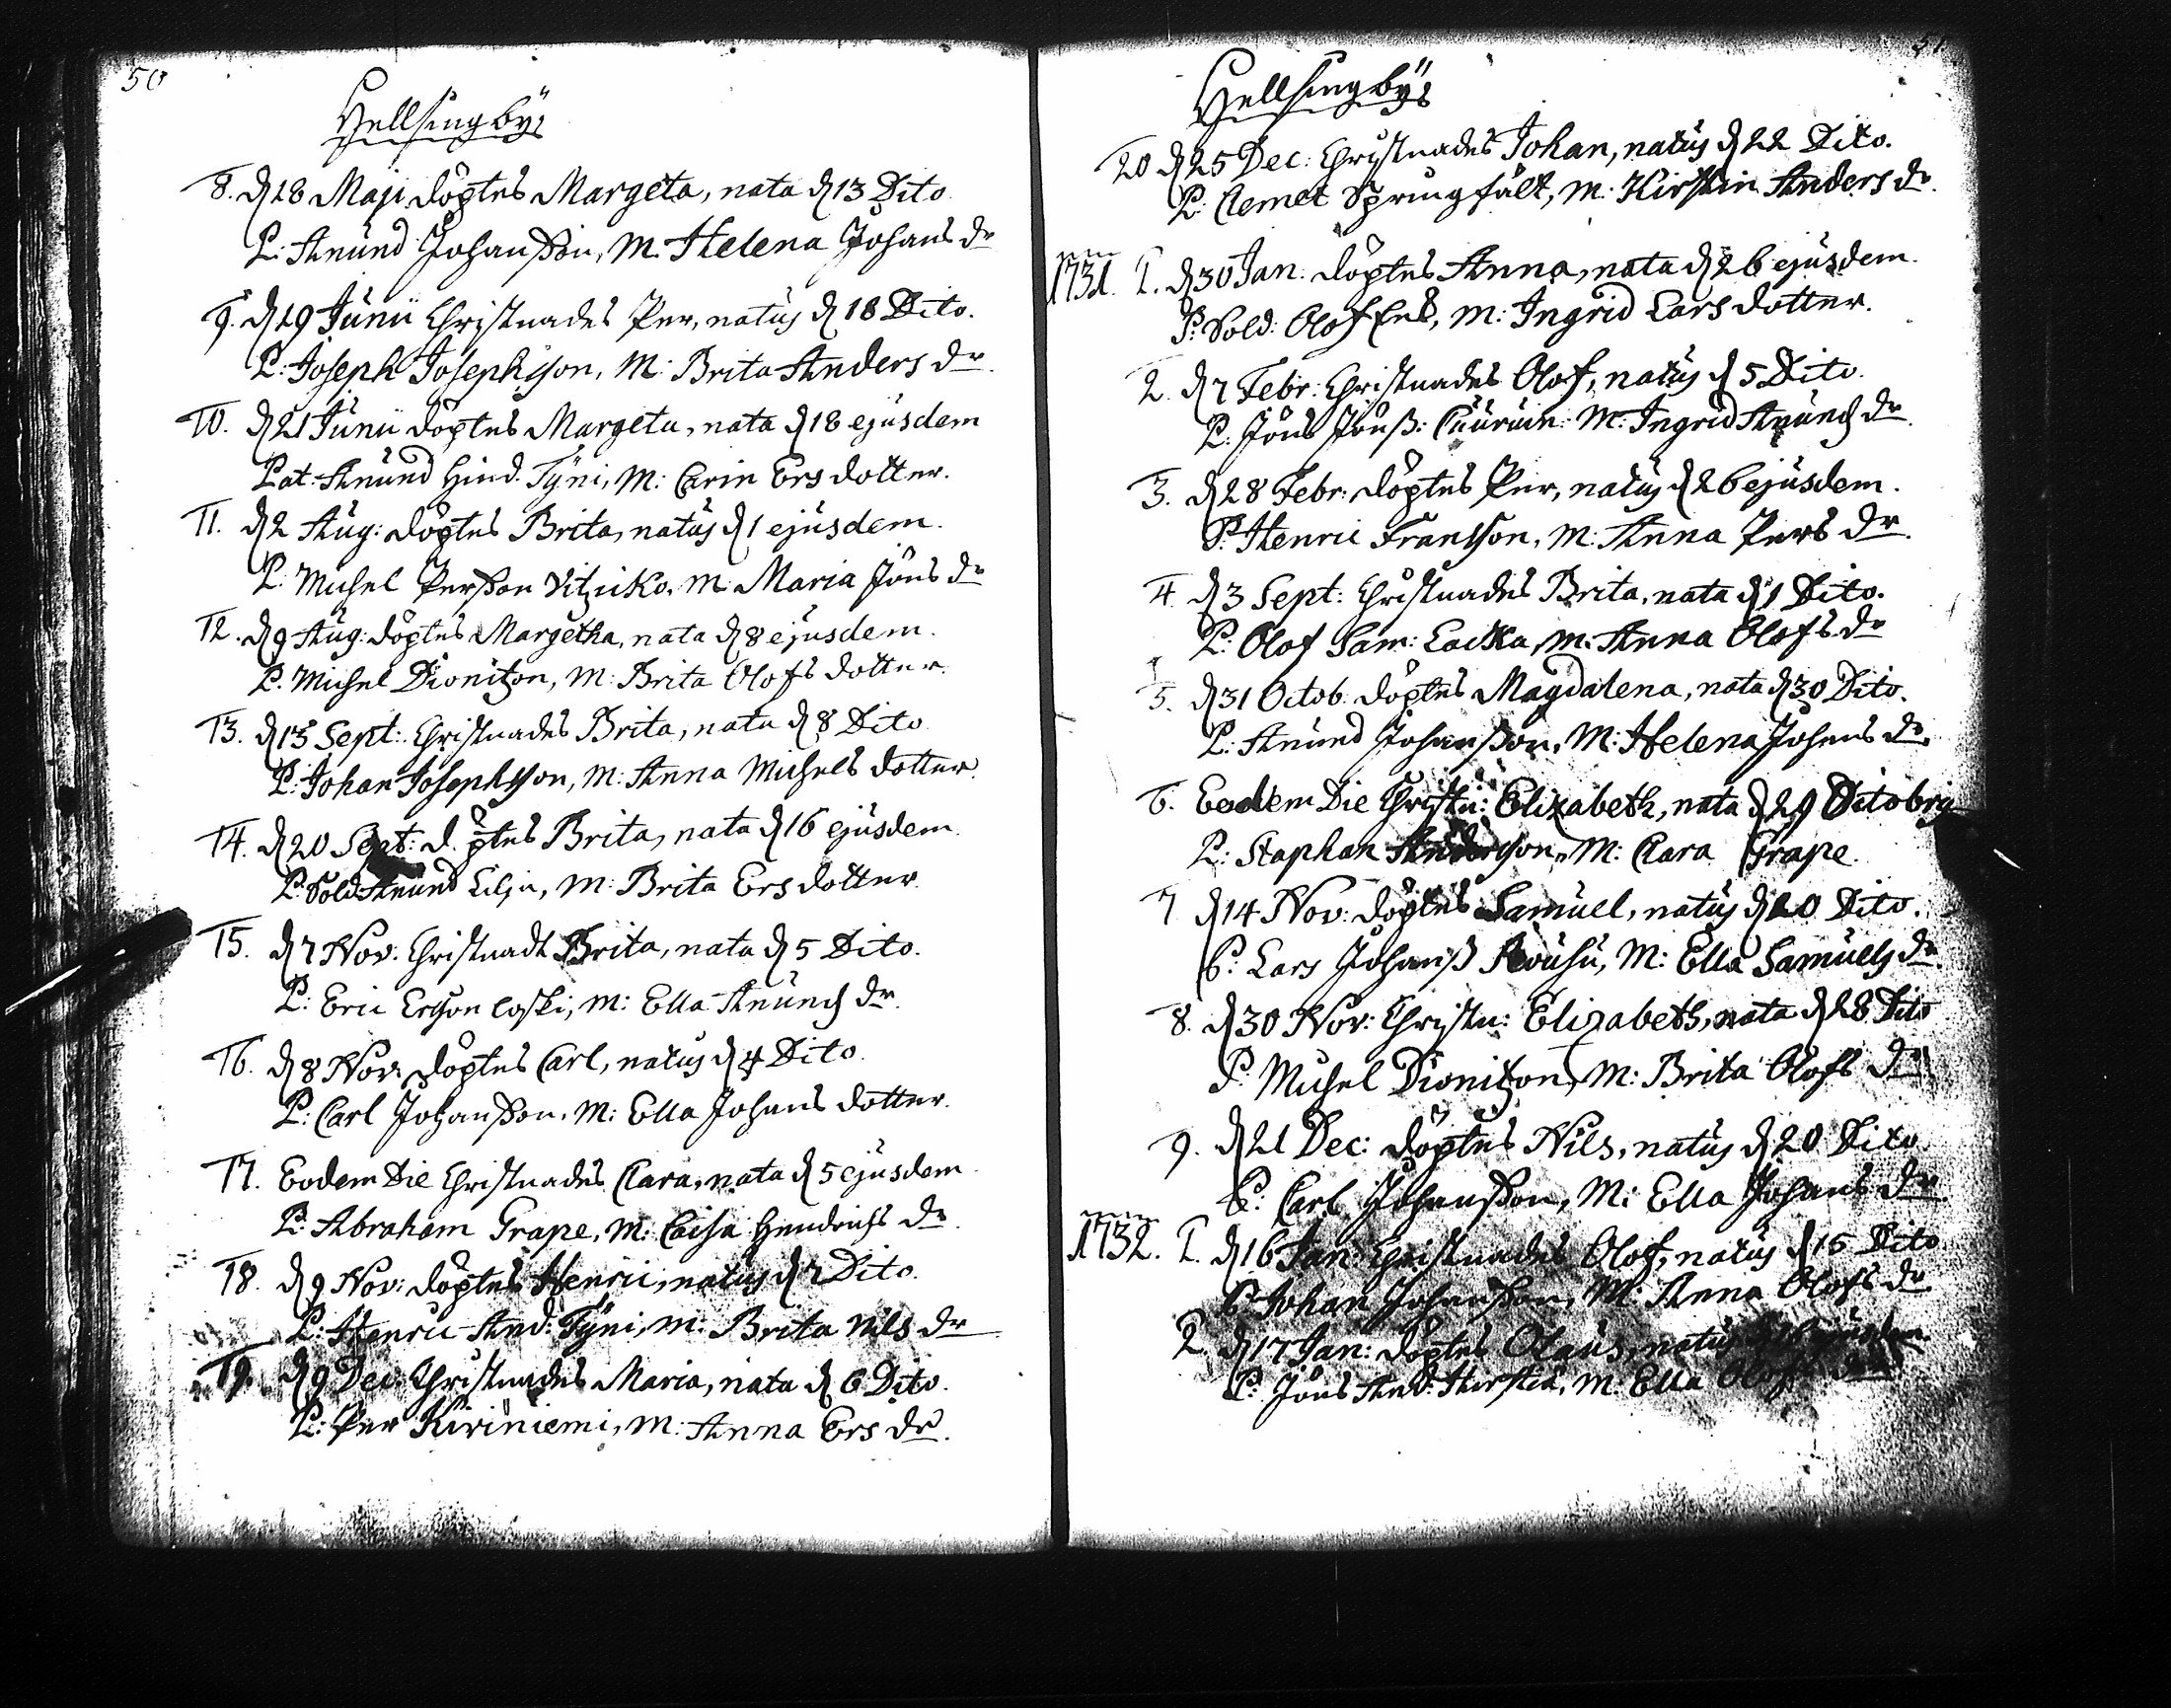 50
Hellsingbÿs
8. d 18 Maji döptes Margeta, nata d 13 Dito
P: Anund Johansson, M. Helena Johans dr
9. d 19 Junii Christnades Per, natus d 18 Dito.
P: Joseph Josephsson, M: Brita Anders dr.
10. d 21 Junii döptes Margeta, nata d 18 ejusdem
Pat: Anund Hind. Tyni, M: Carin Ers dotter.
11. d 2 Aug: döptes Brita, natus d 1 ejusdem.
P: Michel Persson M. Maria Jöns dr
12. d 9 Aug: döptes Margetha, nata d 8 ejusdem.
P. Michel Dionitzon, M: Brita Olofs dotter.
13. d 13 Sept: Christnades Brita, nata d 8 Dito
P: Johan Josephsson, M: Anna Michels dotter.
14. d 20 Sept: d.ptes Brita, nata d 16 ejusdem.
P: Sold: Anund Lilja, M: Brita Ers dotter.
15. d 7 Nov. Christnadt Brita, nata d 5 Dito.
P: Eric Ersson M: Ella Anunds dr.
16. d 8 Nov: döptes Carl, natus d 4 Dito.
P: Carl Johansson, M: Ella Johans dotter.
17. Eodem Die Christnades Clara, nata d 5 ejusdem
P: Abraham Grape, M: Caisa Hendrichs dr.
18. d 9 Nov: döptes Henric, natus d 7 Dito.
P: Henric And: Tyni, M: Brita Nils dr
19. d 9 Dec: Christnades Maria, nata d 6 Dito.
P: Per Kiviniemi, M: Anna Ers dr.
51
Hellsingbÿs
20 d 25 Dec: Christnades Johan, natus d 22 Dito.
P: Clemet Springfält, M: Kirstin Anders dr.
1731. 1. d 30 Jan: döptes Anna, nata d 26 ejusdem.
P: Sold: Olof M: Ingrid Lars dotter.
2. d 7 Febr: Christnades Olof, natus d 5 Dito.
P: Jöns Jönss: M: Ingrid Anunds dr.
3. d 28 Febr: döptes Per, natus d 26 ejusdem.
P: Henric Fransson, M: Anna Pers dr.
4 d 3 Sept: Christnades Brita, nata d 1 Dito.
P: Olof Sam: Lacka, M: Anna Olofs dr
5. d 31 Octob. döptes Magdalena, nata d 30 Dito.
P: Anund Johansson, M: Helena Johans dr.
6. Eodem Die Christn: Elizabeth, nata d 29 Octobris
P: Staphan Andersson, M: Clara Grape.
7 d 14 Nov: döptes Samuel, natus d Dito.
P: Lars Johanss Rousu, M: Ella Samuels dr.
8. d 30 Nov: Christn: Elizabeth, nata d 28 Dito
P: Michel Dionitzon, M: Brita Olofs dr
9. d 21 Dec: döptes Nils, natus d 20 Dito
P: Carl Johansson, M: Ella Johans dr.
1732. 1. d 16 Jan: Christnades Olof, natus d 15 Dito
P: Johan Johansson, M: Anna Olofs dr
2 d 17 Jan: döptes Olaus, natus d 16 ejusdem
P: Jöns And: M: Ella Olofs dr